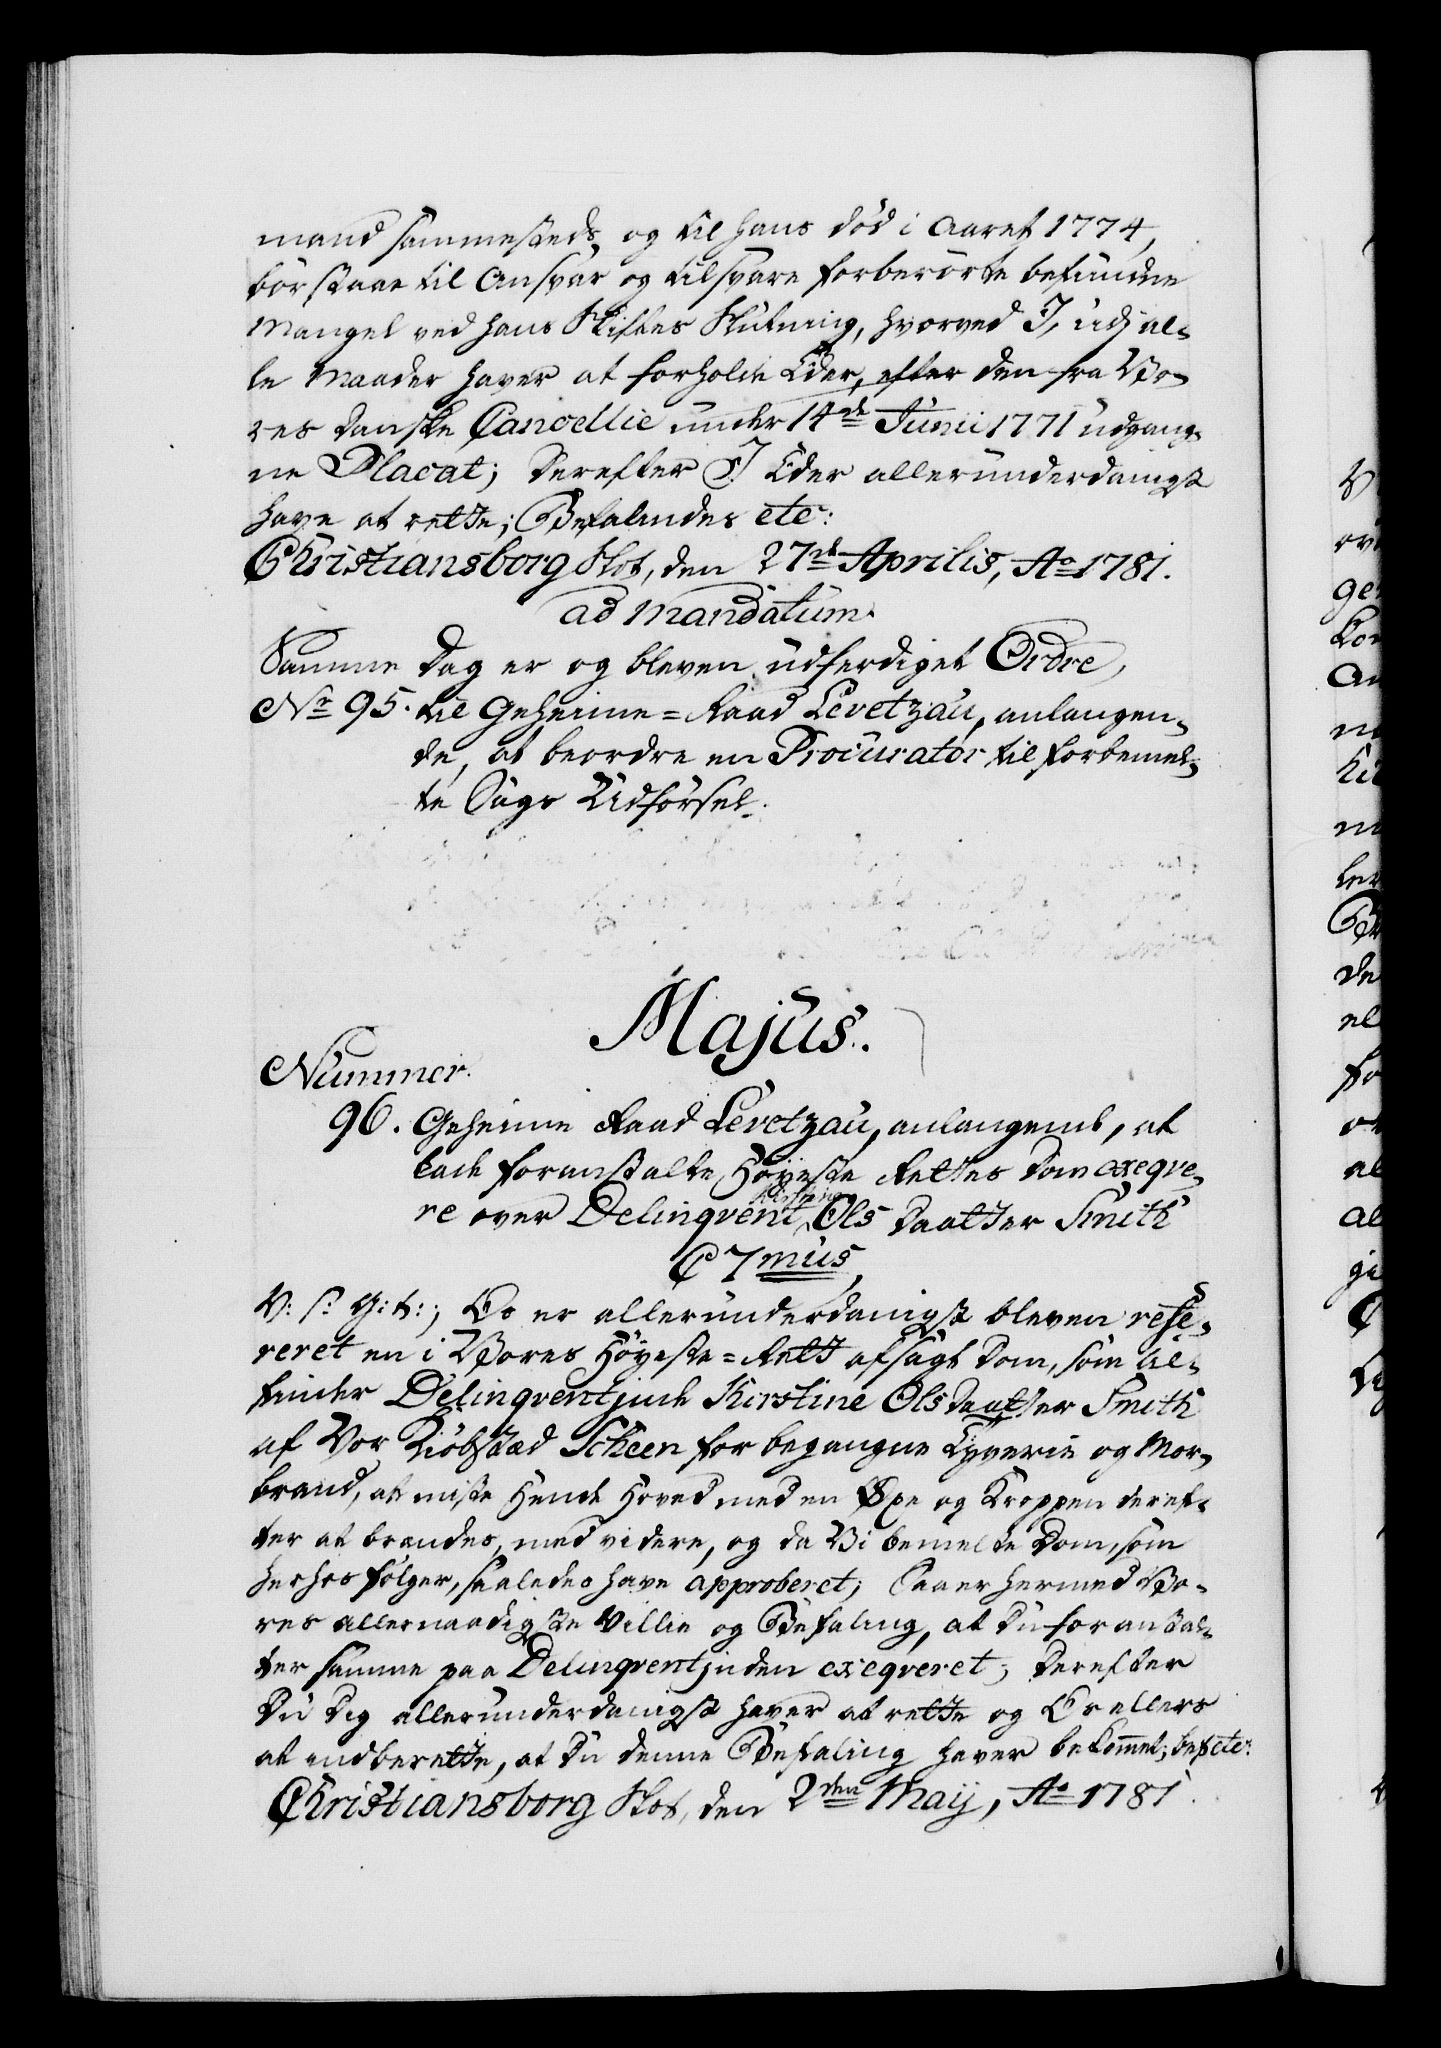 mand sammesteds, og til hans død i Aaret 1774,
bør staae til Ansvar og tilsvare forberørte befundne
Mangel ved hans Skiftes Slutning, hvorved I, udj al-
le Maader haver at forholde Eder, efter den fra Vo-
res Danske Cancellie under 14de Junii 1771 udgang-
ne Placat; Derefter I Eder allerunderdanigst
have at rette; Befalendes etc:
Christiansborg Slot, den 27de Aprilis, Ao 1781.
ad mandatum.
Samme Dag er og bleven udferdiget Ordre,
No 95. til Geheime=Raad Levetzau, anlangen-
de, at beordre en Procurator til forbemel-
te Sags Udførsel.
Majus.
Nummer.
96. Geheime Raad Levetzau, anlangende, at
lade foranstalte Høyeste Rettes Dom exeqve-
re over Delinqvent Kirstine Ols Daatter Smith
C 7mus,
V: S: G: t:; Os er allerunderdanigst bleven refe-
reret en i Vores Høyeste=Rett afsagt Dom, som til-
finder Delinqventjnde Kirstine Olsdaatter Smith
af Vor Kiøbstæd Scheen for begangne Tyverie og Mor-
brand, at miste Hende Hoved med en Øxe og Kroppen deref-
ter at brændes, med videre, og da Vi bemelte Dom, som
herhos følger, saaledes have approberet; Saa er hermed Vo-
res allernaadigste Villie og Befaling, at Du foranstal-
ter samme paa Delinqventjnden exeqveret; Derefter
Du Dig allerunderdanigst haver at rette og Os ellers
at indberette, at Du denne Befaling haver bekommet; bef: etc:
Christiansborg Slot, den 2den Maij, Ao 1781.